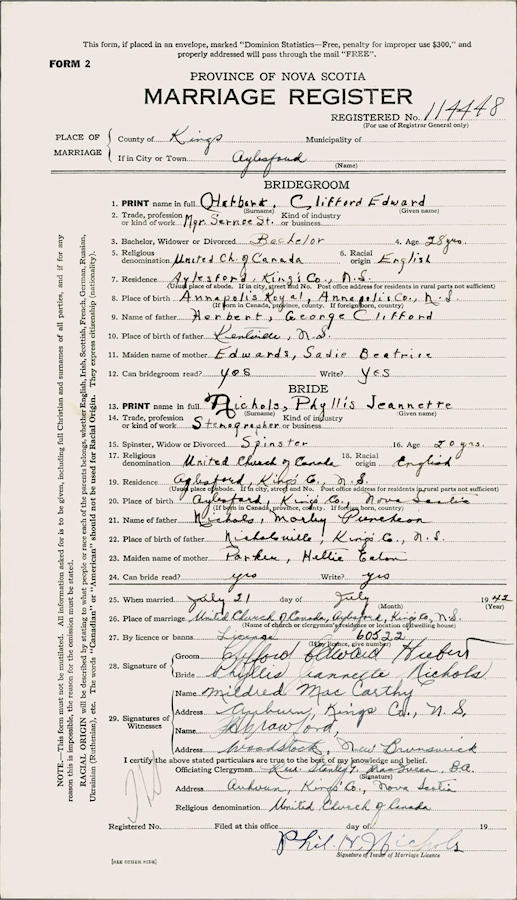 This form, if placed in an envelope, marked "Dominion Statistics—Free, penalty for improper use $300," and
properly addressed will pass through the mail "FREE".
FORM 2
PROVINCE OF NOVA SCOTIA
MARRIAGE REGISTER
REGISTERED No. 114448
(For use of Registrar General only)
PLACE OF MARRIAGE
County of Kings Municipality of
If in City or Town Aylesford
(Name)
BRIDEGROOM
1. PRINT name in full Herbert, Clifford Edward
(Surname) (Given name)
2. Trade, profession or kind of work Mgr. Service St. Kind of industry or business
3. Bachelor, Widower or Divorced Bachelor 4. Age 28 yrs.
5. Religious denomination United Ch. of Canada 6. Racial origin English
7. Residence Aylesford, King's Co., N.S.
(Usual place of abode. If in city, street and No. Post office address for residents in rural parts not sufficient)
8. Place of birth Annapolis Royal, Annapolis Co., N.S.
(If born in Canada, province, county. If foreign born, country)
9. Name of father Herbert, George Clifford
10. Place of birth of father Kentville, N.S.
11. Maiden name of mother Edwards, Sadie Beatrice
12. Can bridegroom read? yes Write? Yes
BRIDE
13. PRINT name in full Nichols, Phyllis Jeannette
(Surname) (Given name)
14. Trade, profession or kind of work Stenographer Kind of industry or business
15. Spinster, Widow or Divorced Spinster 16. Age 20 yrs.
17. Religious denomination United Church of Canada 18. Racial origin English
19. Residence Aylesford, King's Co. N.S.
(Usual place of abode. If in city, street and No. Post office address for residents in rural parts not sufficient)
20. Place of birth Aylesford, King's Co., Nova Scotia
(If born in Canada, province, county. If foreign born, country)
21. Name of father Nichols, Morley Puncheon
22. Place of birth of father Nicholsville, King's Co., N.S.
23. Maiden name of mother Parker, Hettie Eaton
24. Can bride read? yes Write? yes
25. When married July 21 day of July 1942
(Month) (Year)
26. Place of marriage United Church of Canada, Aylesford, Kings Co., N.S.
(Name of church or clergyman's residence or location of dwelling house)
27. By licence or banns License 60522
(If by licence, give number)
28. Signature of
Groom Clifford Edward Herbert
Bride Phyllis Jeannette Nichols
29. Signatures of Witnesses
Name Mildred MacCarthy
Address Auburn, Kings Co., N.S.
Name Crawford,
Address Woodstock, New Brunswick
I certify the above stated particulars are true to the best of my knowledge and belief.
Officiating Clergyman Rev. Stanley B.A.
(Signature)
Address Auburn, King's Co., Nova Scotia
Religious denomination United Church of Canada
Registered No. Filed at this office day of 19
Phil. H. Nichols
Signature of Issuer of Marriage Licence
[SEE OTHER SIDE]
NOTE.—This form must not be mutilated. All information asked for is to be given, including full Christian and surnames of all parties, and if for any
reason this is impossible, the reason for the omission must be stated.
RACIAL ORIGIN will be described by stating to what people or race each of the parents belongs, whether English, Irish, Scottish, French, German, Russian,
Ukrainian (Ruthenian), etc. The words "Canadian" or "American" should not be used for Racial Origin. They express citizenship (nationality).